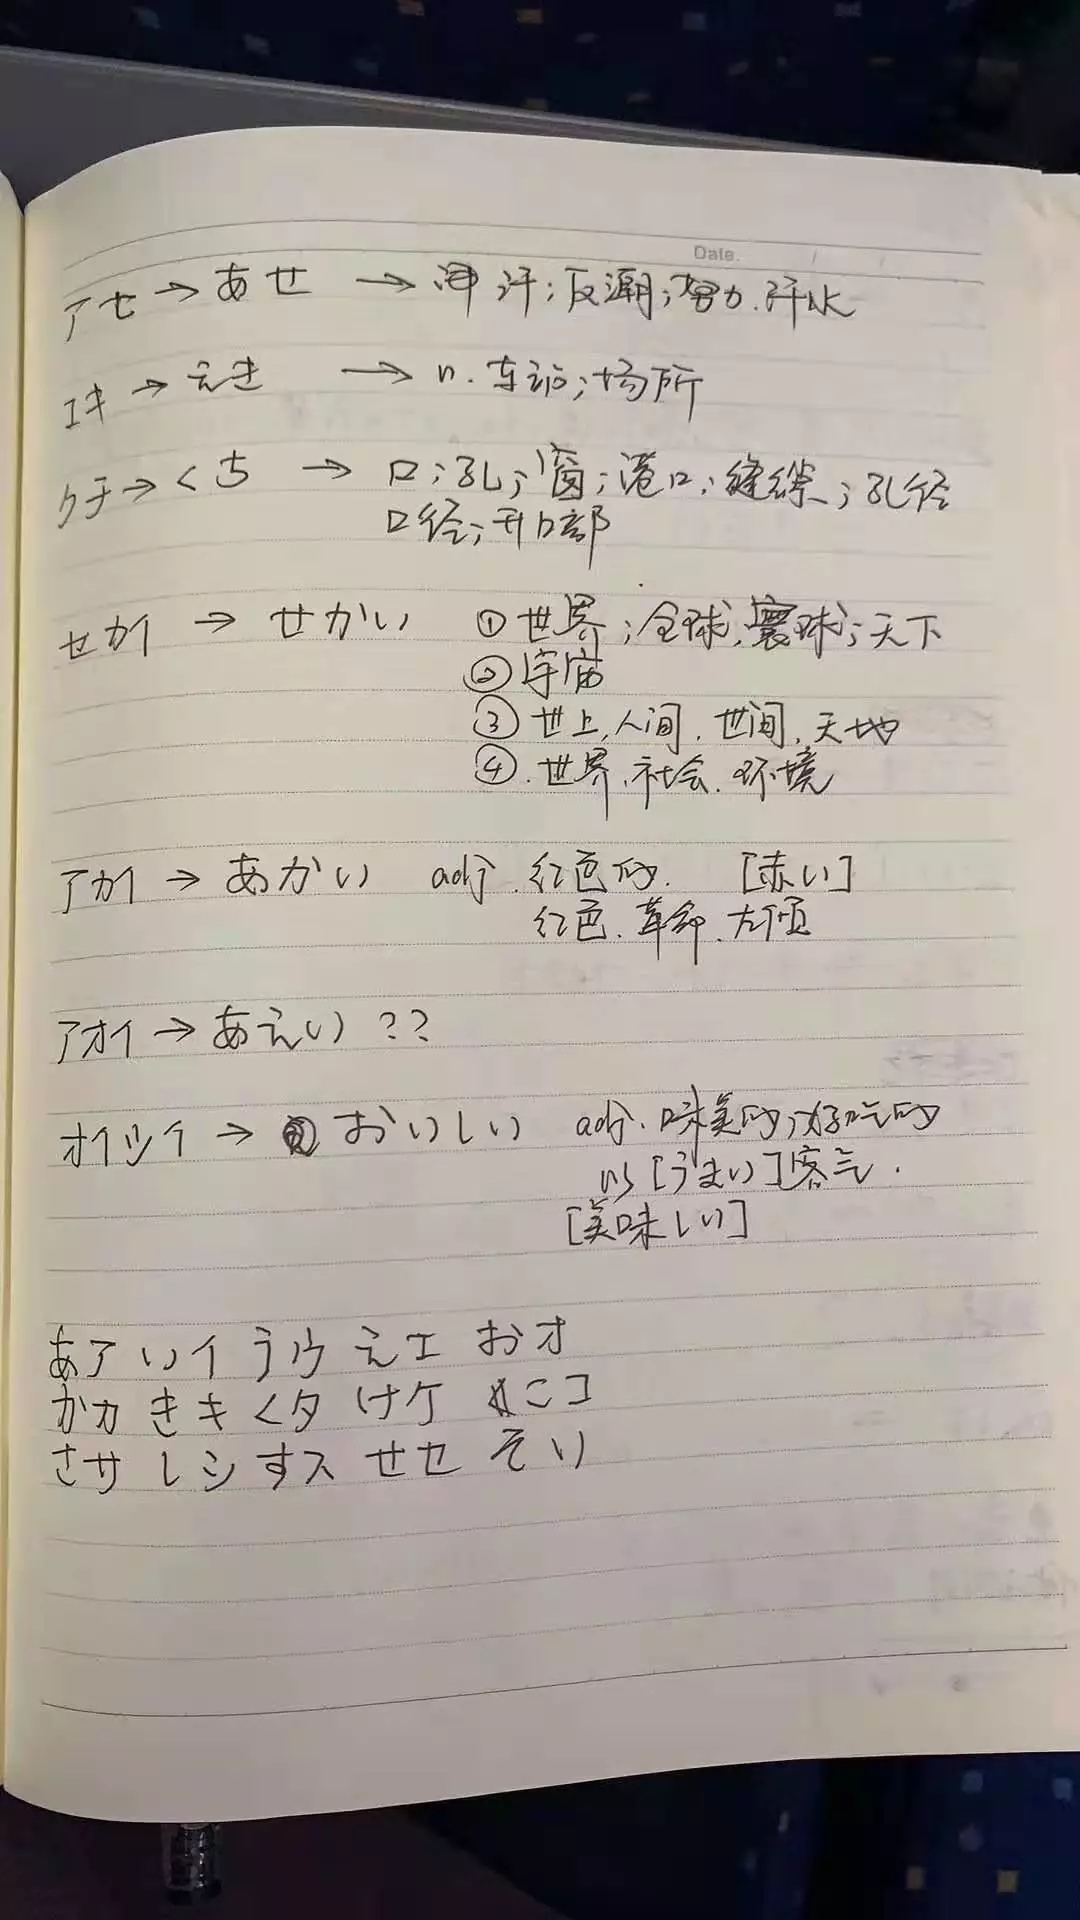 Date. / /
アセ → あせ → 汗;反潮;努力.汗水
エキ → えき → n.车站;场所
クチ → くち → 口;孔;窗;港口;缝隙;孔径
口径;开口部
セカイ → せかい ①世界;全球,寰球;天下
②宇宙
③世上,人间.世间.天地
④.世界.社会.环境
アカイ → あかい adj.红色的. [赤い]
红色.革命.左倾
アオイ → あえい ??
オイツイ → おいしい adj.味美的;好吃的
比[うまい]客气.
[美味しい]
あア いイ うウ えエ おオ
かカ きキ くタ けケ こコ
さサ しシ すス せセ そリ